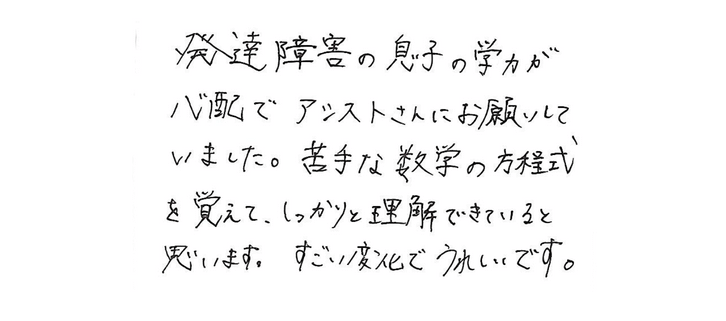 発達障害の息子の学力が
心配で アシストさんにお願いして
いました。苦手な数学の方程式
を覚えて、しっかりと理解できていると
思います。すごい変化でうれしいです。